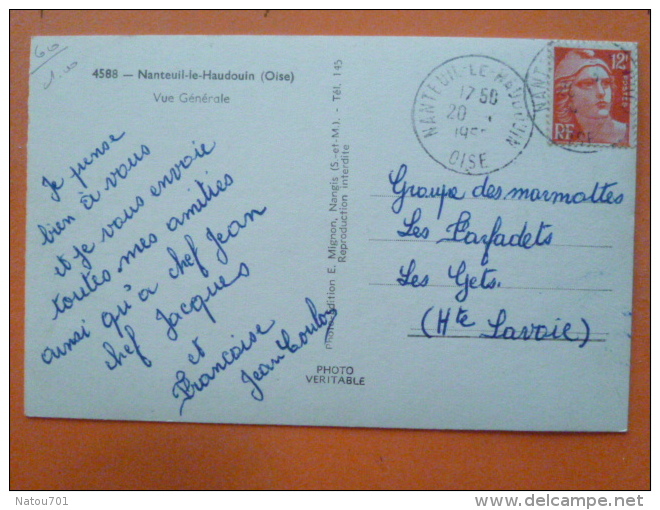 6,00
1,00
4588 — Nanteuil-le-Haudouin (Oise)
Vue Générale
Je pense
bien à vous
et je vous envoie
toutes mes amitiés
ainsi qu'a chef Jean
chef Jacques
et
Francoise
Jean Coulon
Photo-Edition E. Mignon, Nangis (S.-et-M.). - Tél. 145
Reproduction interdite
PHOTO
VERITABLE
NANTEUIL-LE-HAUDOUIN
17 50
20
195
OISE
NANT
12F
POSTES
RF
Groupe des marmottes
Les Farfadets
Les Gets.
(Hte Savoie)
Natou701
delcampe.net